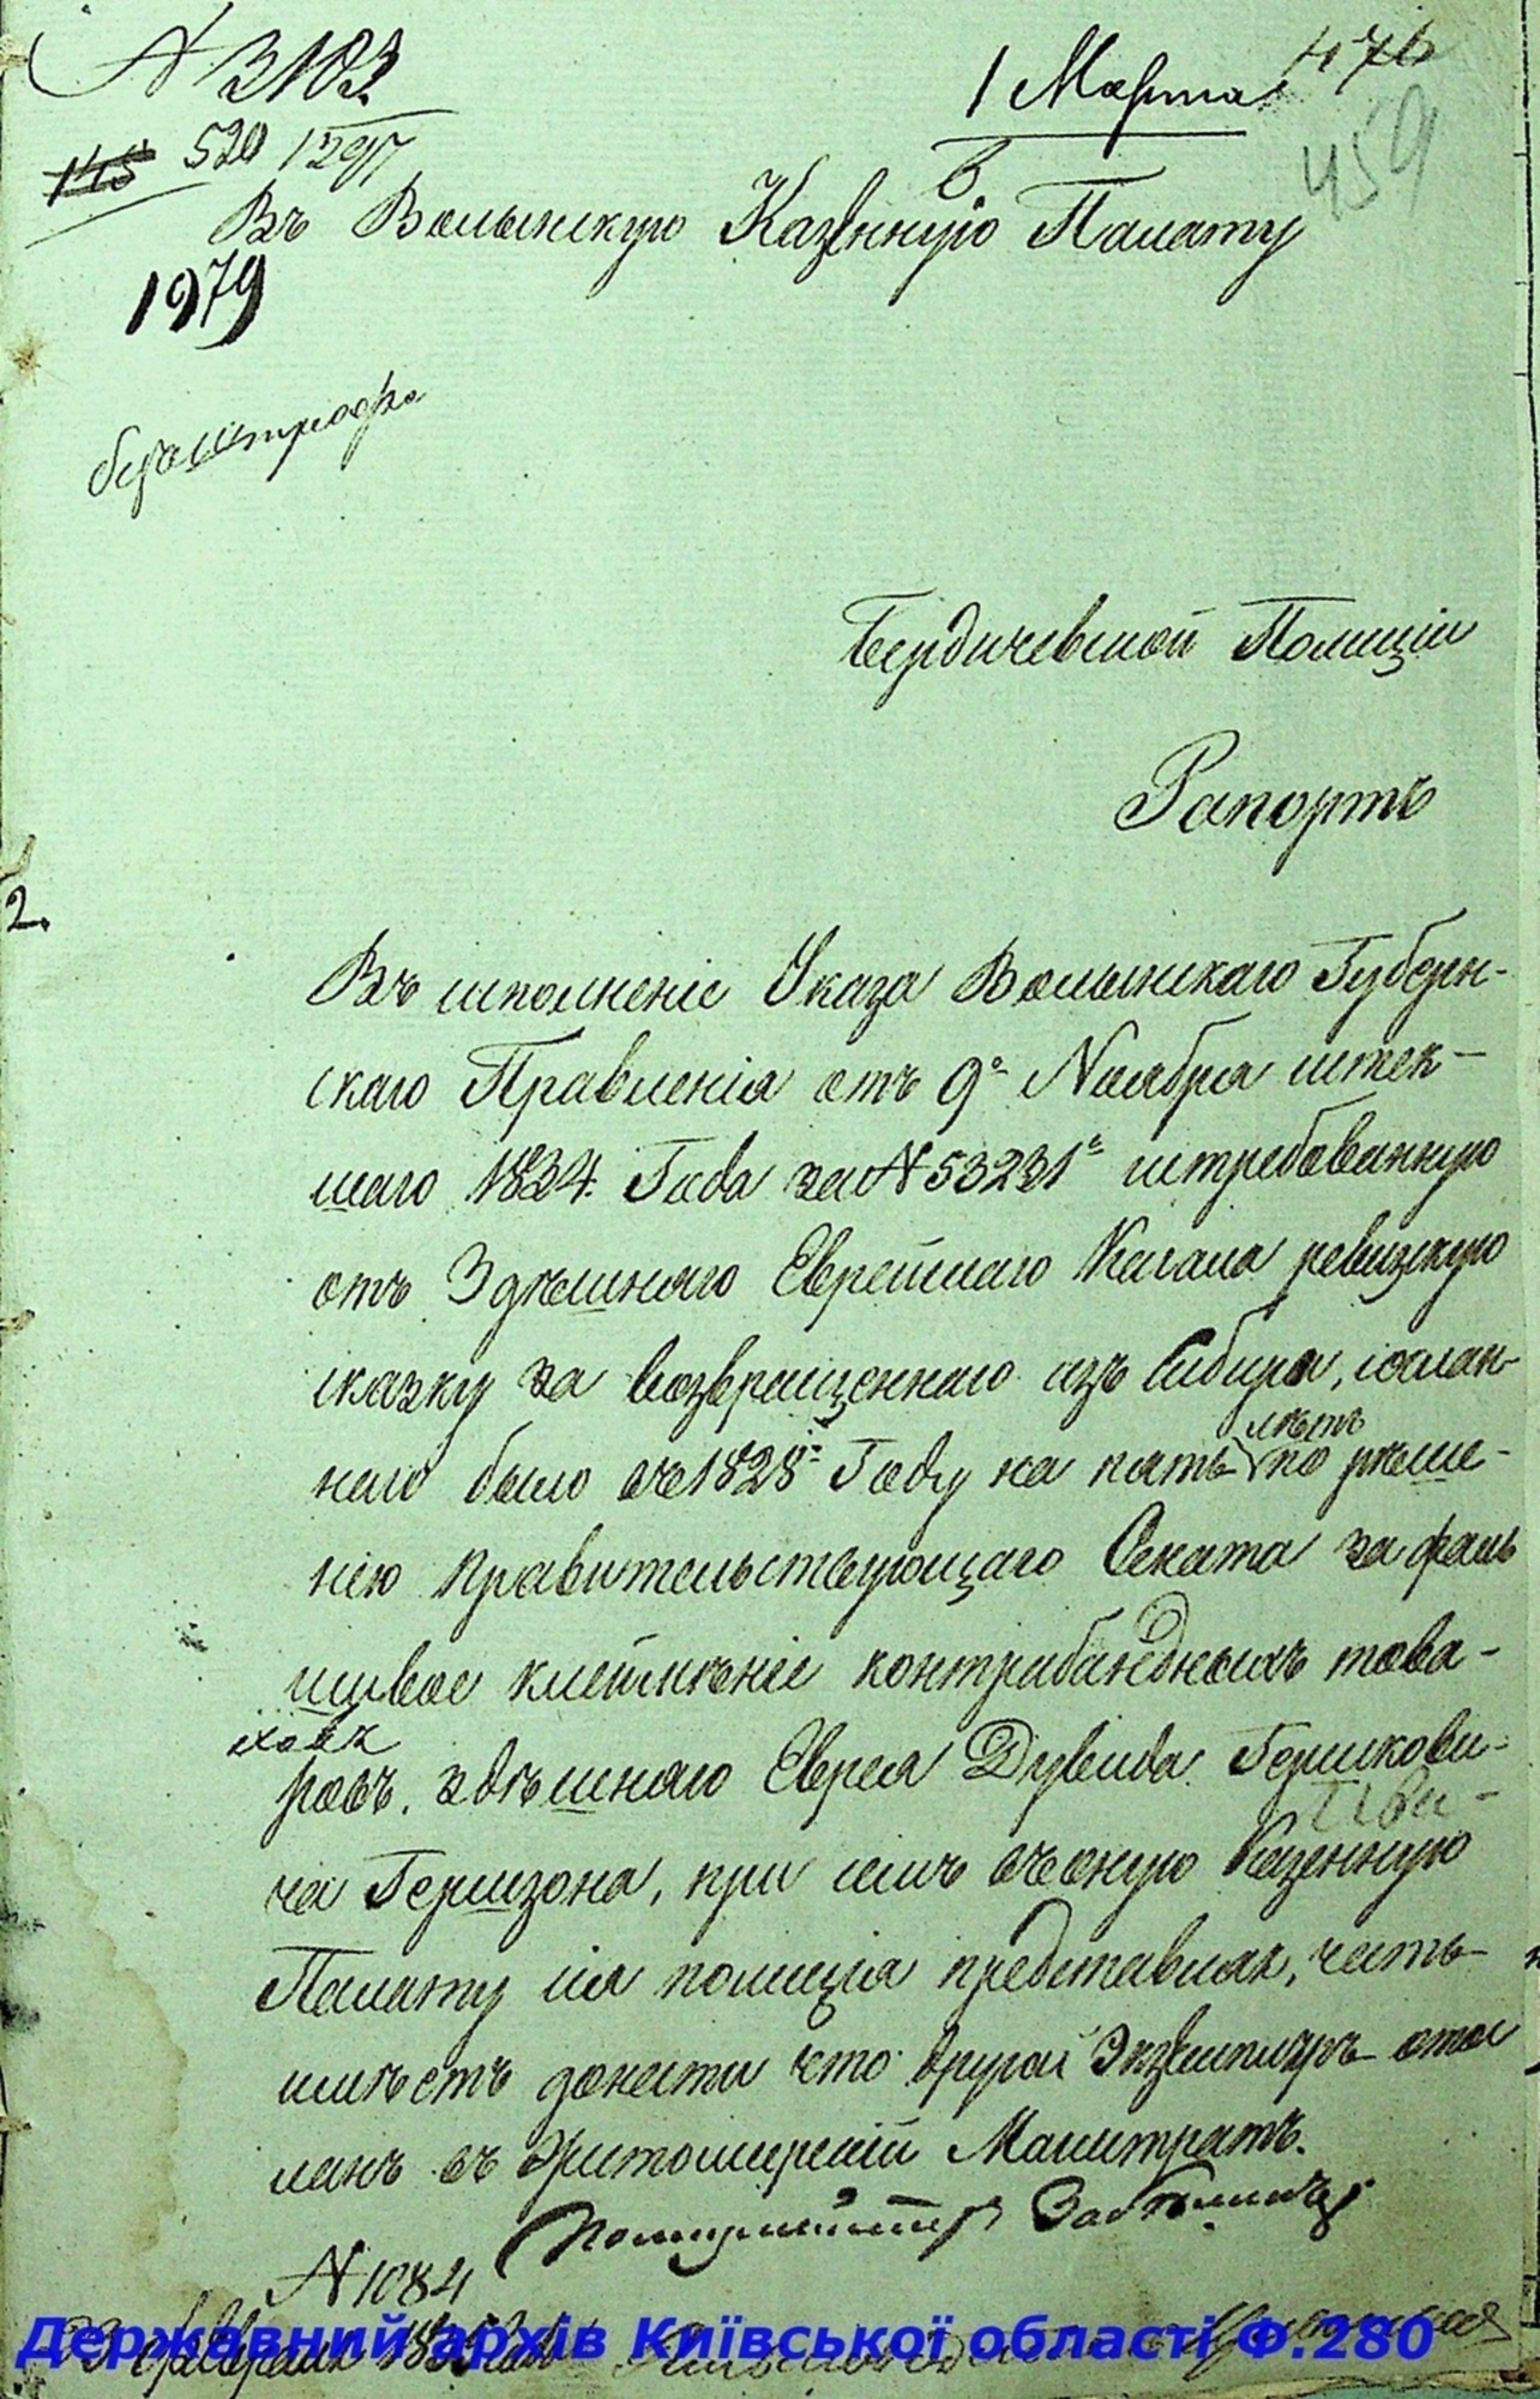 N 3103
1 Марта 476
145 520 1297
459
Въ Волынскую Казенную Палату
1979
безъ штрафа
Бердичевской Полиціи
Рапортъ
2.
Въ исполненіе Указа Волынскаго Губерн-
скаго Правленія отъ 9го Ноября истек-
шаго 1834. Года за N 53231м истребованную
отъ Здѣшняго Еврейскаго Кагала ревизскую
сказку за возвращеннаго изъ Сибири, сослан-
наго было въ 1828м Году на пять лѣтъ по рѣше-
нію Правительствующаго Сената за фаль
шивое клейменіе контрабандныхъ това-
ровъ, здѣшняго Еврея Дувида Гершкови-
ча Гершзона, при семъ въ оную Казенную
Палату сія полиція представляя, честь
имѣетъ донести что другой Экземпляръ отос
ланъ въ Житомирскій Магистратъ.
Полицмейстеръ
N 1084
Февраля
Державний архів Київської області Ф.280